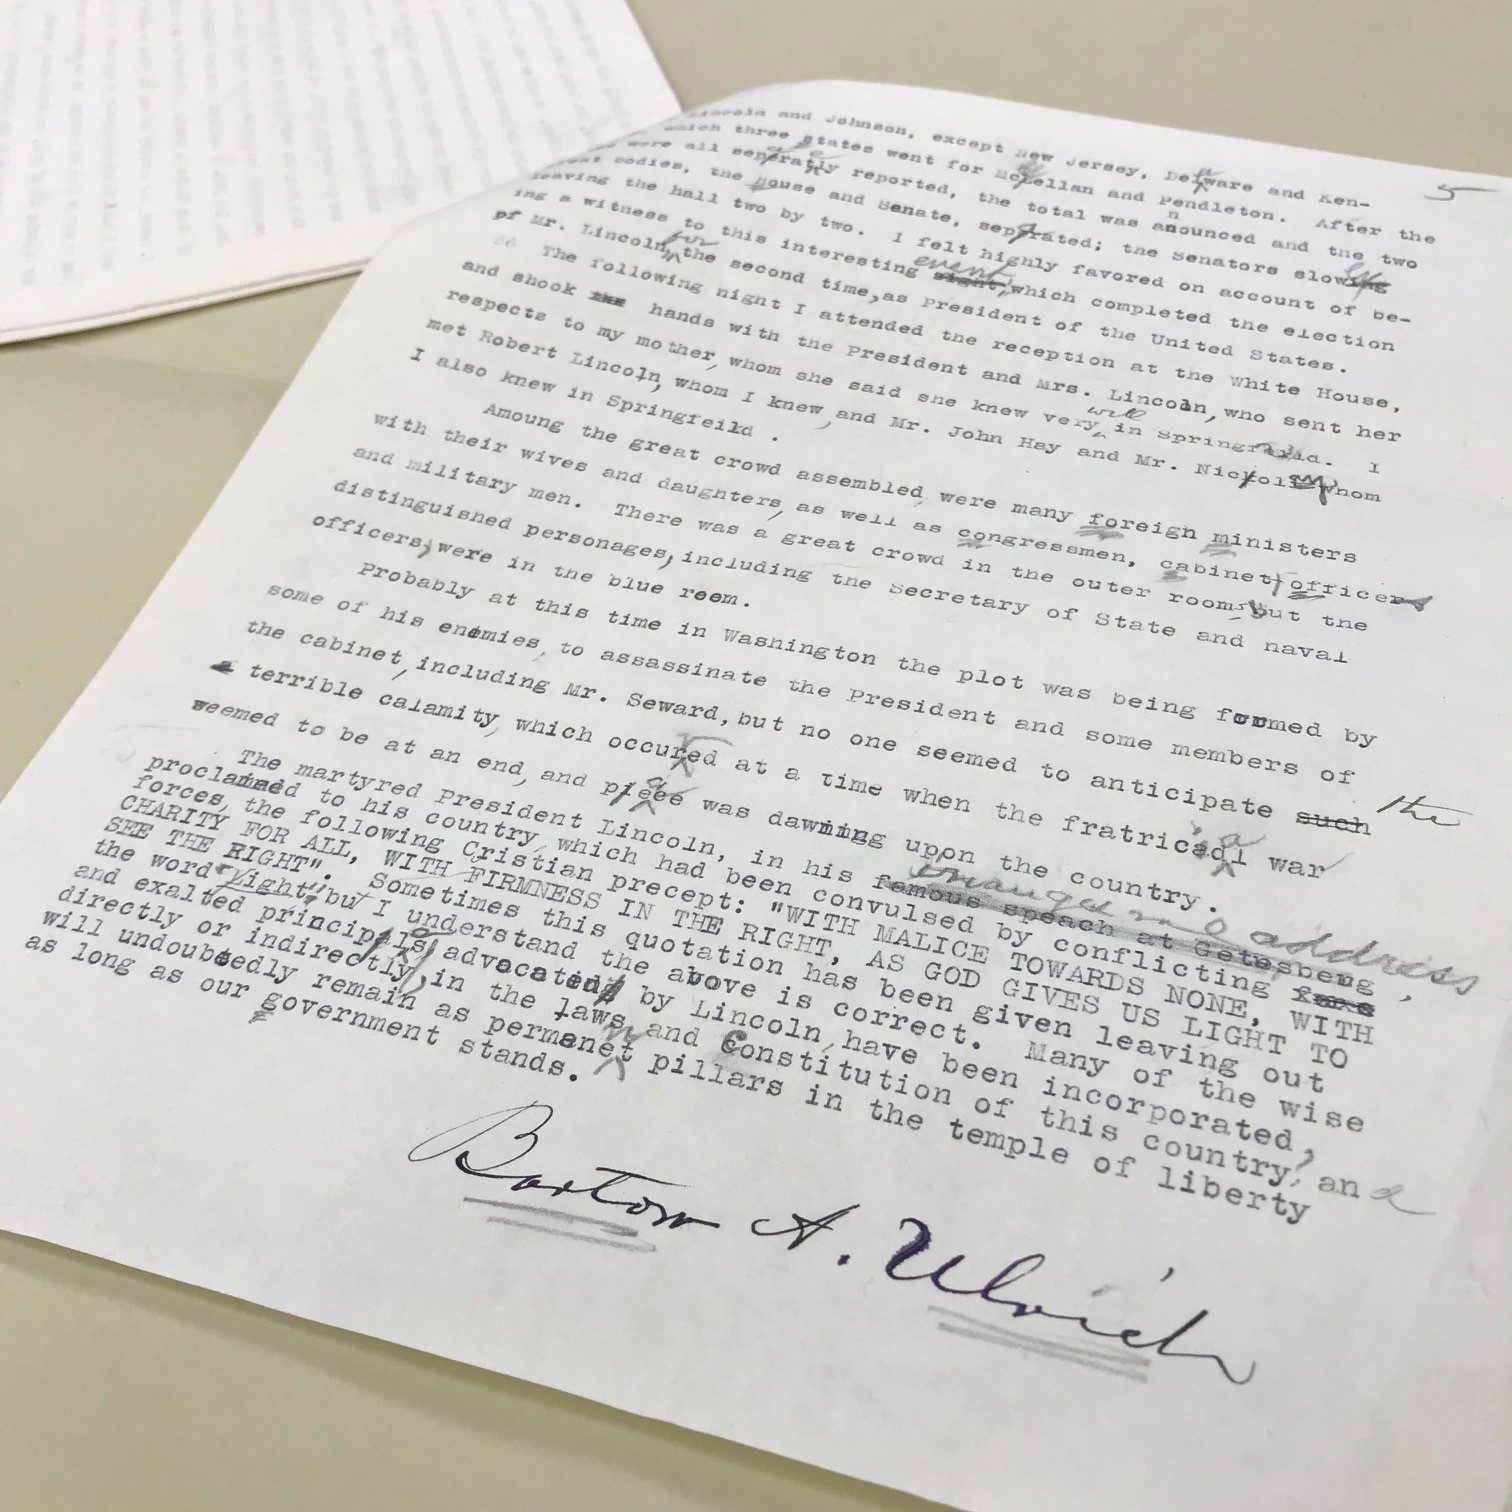 5
Lincoln and Johnson, except New Jersey, Delaware and Ken-
which three states went for McClellan and Pendleton. After the
were all separately reported, the total was anounced and the two
bodies, the House and Senate, seprated; the Senators slowing
leaving the hall two by two. I felt highly favored on account of be-
ing a witness to this interesting sight, event which completed the election
of Mr. Lincoln, for the second time, as President of the United States.
The following night I attended the reception at the White House,
and shook the hands with the President and Mrs. Lincoln, who sent her
respects to my mother, whom she said she knew very well in Springfield. I
met Robert Lincoln, whom I knew, and Mr. John Hay and Mr. whom
I also knew in Springfeild .
Amoung the great crowd assembled, were many foreign ministers
with their wives and daughters, as well as congressmen, cabinet officers
and military men. There was a great crowd in the outer room, but the
distinguished personages, including the Secretary of State and naval
officers, were in the blue room.
Probably at this time in Washington the plot was being formed by
some of his enemies, to assassinate the President and some members of
the cabinet, including Mr. Seward, but no one seemed to anticipate such the
a terrible calamity, which occurred at a time when the fratricidal war
seemed to be at an end, and peace was dawning upon the country.
The martyred President Lincoln, in his famous speach at Getesberg, address
proclaimed to his country, which had been convulsed by conflicting
forces, the following Cristian precept: "WITH MALICE TOWARDS NONE, WITH
CHARITY FOR ALL, WITH FIRMNESS IN THE RIGHT, AS GOD GIVES US LIGHT TO
SEE THE RIGHT". Sometimes this quotation has been given leaving out
the word "right", but I understand the above is correct. Many of the wise
and exalted principals, advocated by Lincoln, have been incorporated,
directly or indirectly, in the laws and Constitution of this country, and
will undoubtedly remain as permanent pillars in the temple of liberty
as long as our government stands.
Barton A. Ulrich